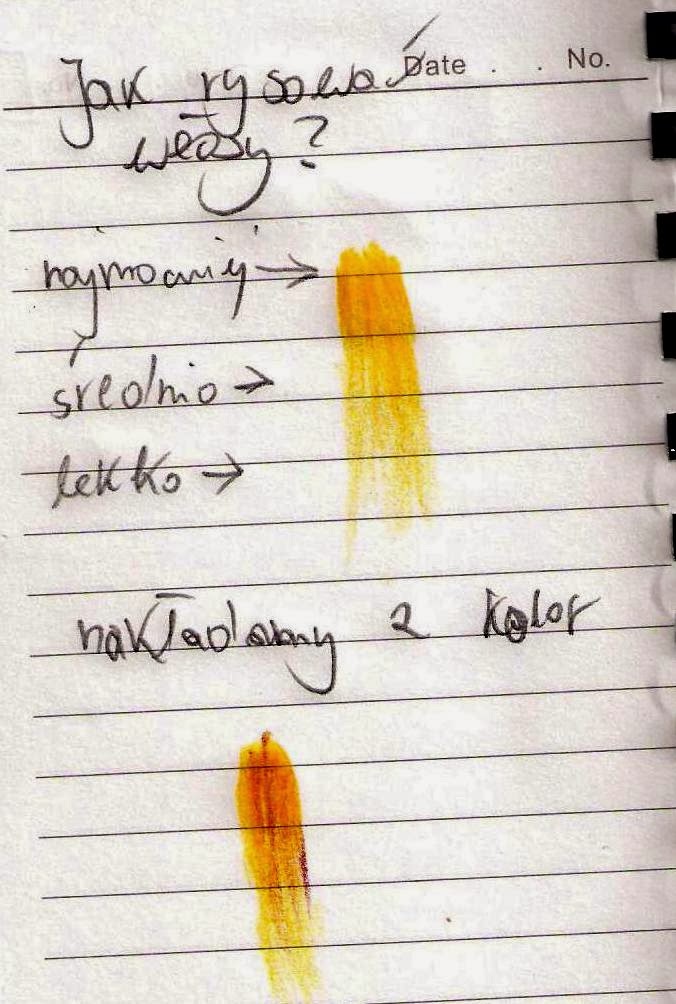 Jak rysować Date . . No.
włosy?
najmocniej →
średnio →
lekko →
nakładamy 2 kolor